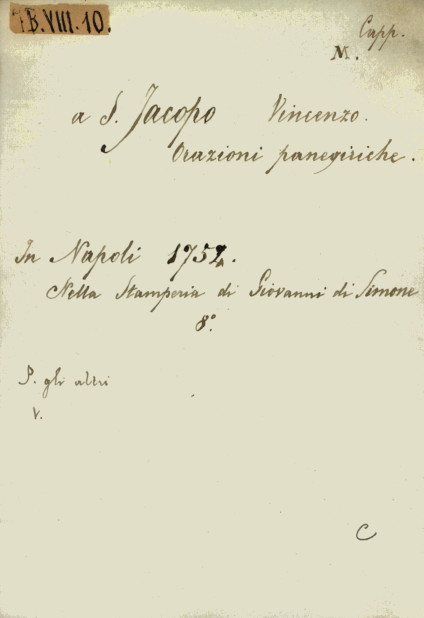 B.VIII.10.
Capp.
M.
a S. Jacopo Vincenzo.
Orazioni panegiriche.
In Napoli 1752.
Nella Stamperia di Giovanni di Simone
8º
P. gli altri
V.
C